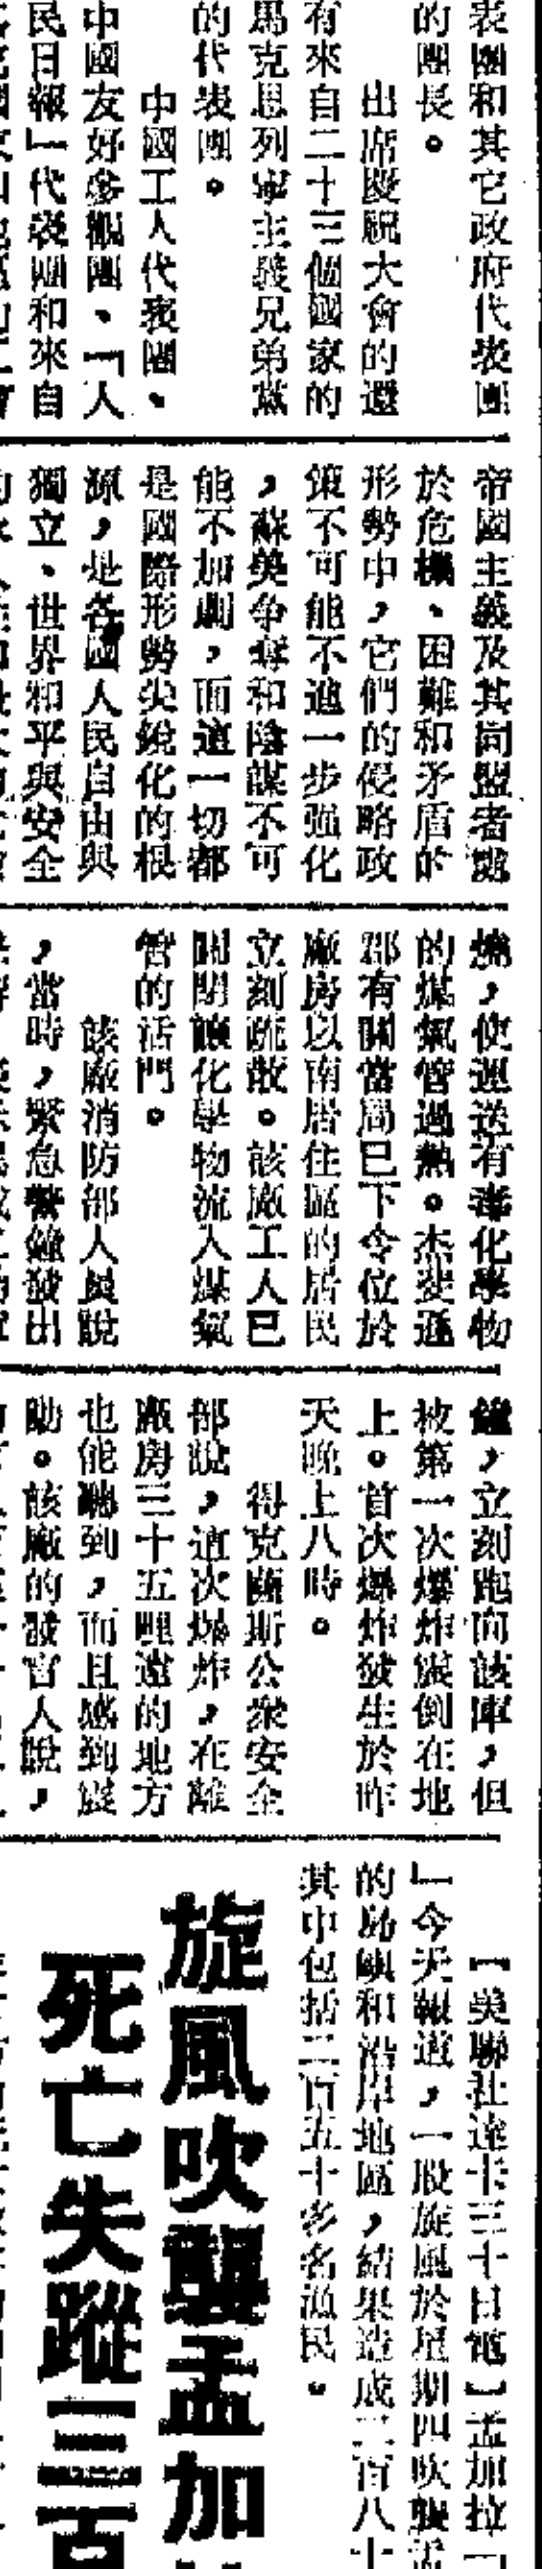 表團和其它政府代表團
的團長。
出席慶祝大會的還
有來自二十三個國家的
馬克思列寧主義兄弟黨
的代表團。
中國工人代表團、
中國友好參觀團、「人
民日報」代表團和來自
帝國主義及其同盟者處
於危機、困難和矛盾的
形勢中，它們的侵略政
策不可能不進一步強化
，蘇美争奪和陰謀不可
能不加劇，而這一切都
是國際形勢尖銳化的根
源，是各國人民自由與
獨立、世界和平與安全
燒，使運送有毒化學物
的煤氣管過熱。杰斐遜
郡有關當局已下令位於
廠房以南居住區的居民
立刻疏散。該廠工人已
關閉讓化學物流入煤氣
管的活門。
該廠消防部人員說
，當時，緊急警鐘發出
鐘，立刻跑向該庫，但
被第一次爆炸震倒在地
上。首次爆炸發生於昨
天晚上八時。
得克薩斯公衆安全
部說，這次爆炸，在離
廠房三十五哩遠的地方
也能聽到，而且感到震
動。該廠的發言人說，
【美聯社達卡三十日電】孟加拉「
」今天報道，一股旋風於星期四吹襲孟
的島嶼和沿岸地區，結果造成二百八十
其中包括二百五十多名漁民。
旋風吹襲孟加
死亡失蹤三百